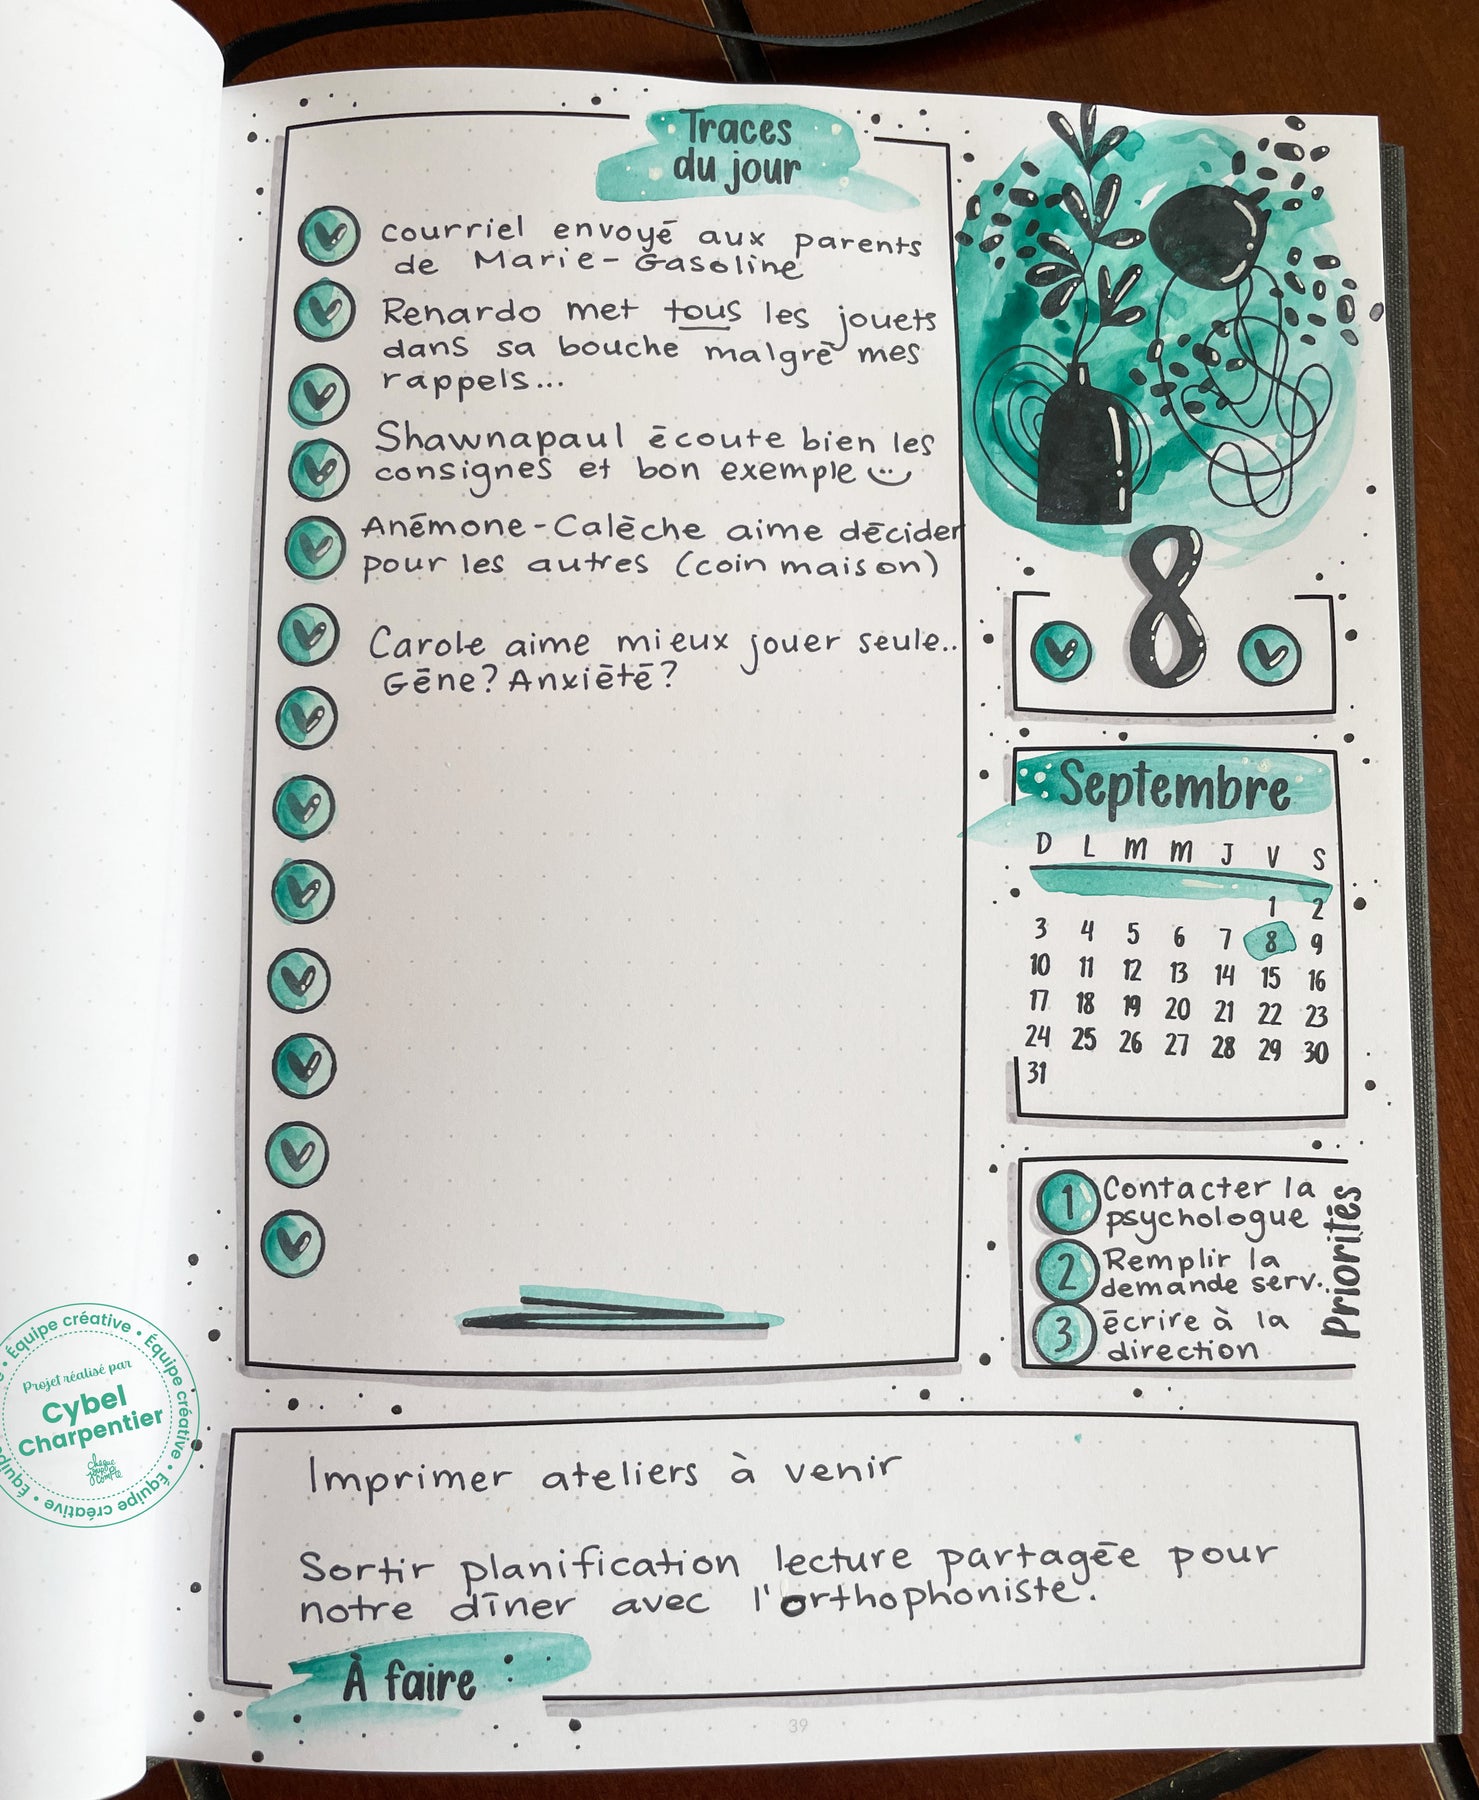 Traces
du jour
courriel envoyé aux parents
de Marie-Gasoline
Renardo met tous les jouets
dans sa bouche malgré mes
rappels...
Shawnapaul écoute bien les
consignes et bon exemple
Anémone-Calèche aime décider
pour les autres (coin maison)
Carole aime mieux jouer seule..
Gêne? Anxiété?
8
Septembre
D L M M J V S
1 2
3 4 5 6 7 8 9
10 11 12 13 14 15 16
17 18 19 20 21 22 23
24 25 26 27 28 29 30
31
Priorités
1 Contacter la
psychologue
2 Remplir la
demande serv..
3 écrire à la
direction
Imprimer ateliers à venir
Sortir planification lecture partagée pour
notre dîner avec l'orthophoniste.
À faire
39
Équipe créative • Équipe créative • Équipe créative • Équipe
Projet réalisé par
Cybel
Charpentier
chaque
jour
compte